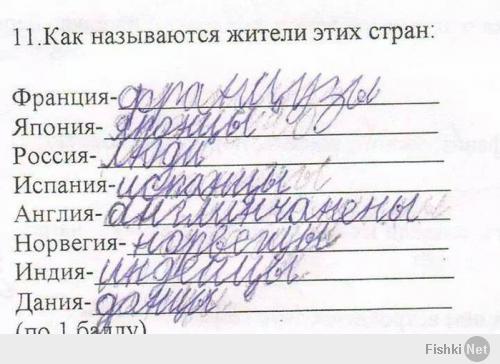 11.Как называются жители этих стран:
Франция- французы
Япония- японцы
Россия- люди
Испания- испанцы
Англия- англинчанены
Норвегия- норвегцы
Индия- индейцы
Дания- данцы
(по 1 баллу)
Fishki Net